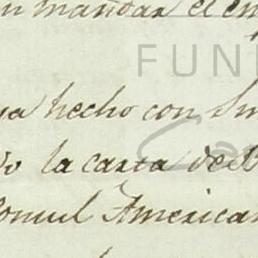 mandar el en
FUN
ya hecho con Su
la carta de
Consul American